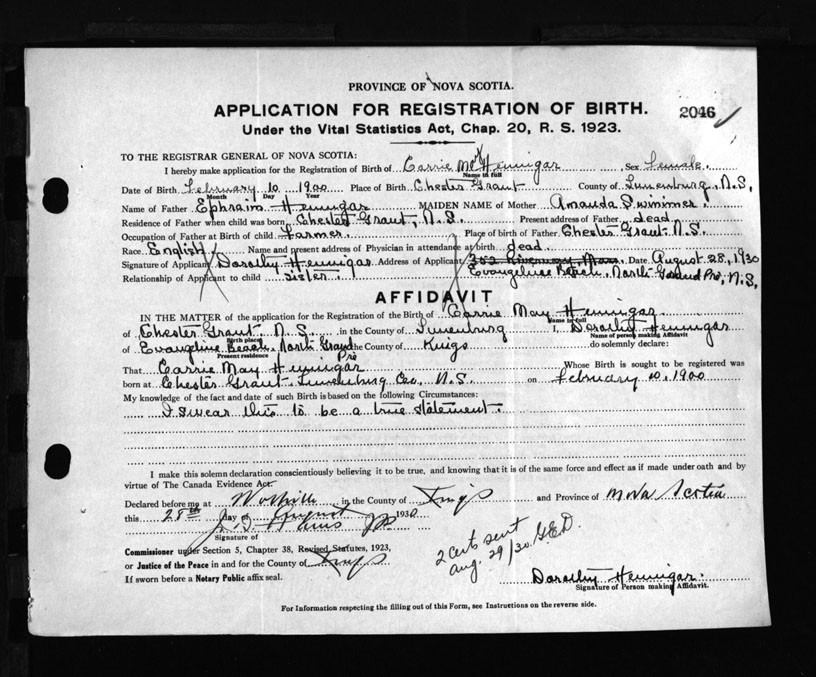 PROVINCE OF NOVA SCOTIA.
APPLICATION FOR REGISTRATION OF BIRTH. 2046
Under the Vital Statistics Act, Chap. 20, R. S. 1923.
TO THE REGISTRAR GENERAL OF NOVA SCOTIA:
I hereby make application for the Registration of Birth of Carrie May Hennigar Sex Female.
Name in full
Date of Birth February 10 1900 Place of Birth Chester Grant County of Lunenburg, N.S,
Month Day Year
Name of Father Ephraim Hennigar MAIDEN NAME of Mother Amanda Swimmer.
Residence of Father when child was born Chester Grant, N.S. Present address of Father dead.
Occupation of Father at Birth of child Farmer. Place of birth of Father Chester Grant N.S.
Race English Name and present address of Physician in attendance at birth dead.
Signature of Applicant Dorothy Hennigar Address of Applicant 302 Mass. Date August 28, 1930
Relationship of Applicant to child sister. Evangeline Beach, North Grand Pré, N.S,
AFFIDAVIT
IN THE MATTER of the application for the Registration of the Birth of Carrie May Hennigar
Name in full
of Chester Grant. N.S. in the County of Lunenburg I, Dorothy Hennigar
Birth place Name of person making Affidavit
of Evangeline Beach, North Grand Pré the County of Kings do solemnly declare:
Present residence
That Carrie May Hennigar Whose Birth is sought to be registered was
born at Chester Grant Lunenburg Co., N.S. on February 10, 1900
My knowledge of the fact and date of such Birth is based on the following Circumstances:
I swear this to be a true statement.
I make this solemn declaration conscientiously believing it to be true, and knowing that it is of the same force and effect as if made under oath and by
virtue of The Canada Evidence Act.
Declared before me at Wolfville in the County of Kings and Province of Nova Scotia
this 28th day of August 1930
Signature of
Commissioner under Section 5, Chapter 38, Revised Statutes, 1923,
or Justice of the Peace in and for the County of Kings
If sworn before a Notary Public affix seal.
2 certs sent
Aug. 29/30 G.E.D.
Dorothy Hennigar.
Signature of Person making Affidavit.
For Information respecting the filling out of this Form, see Instructions on the reverse side.